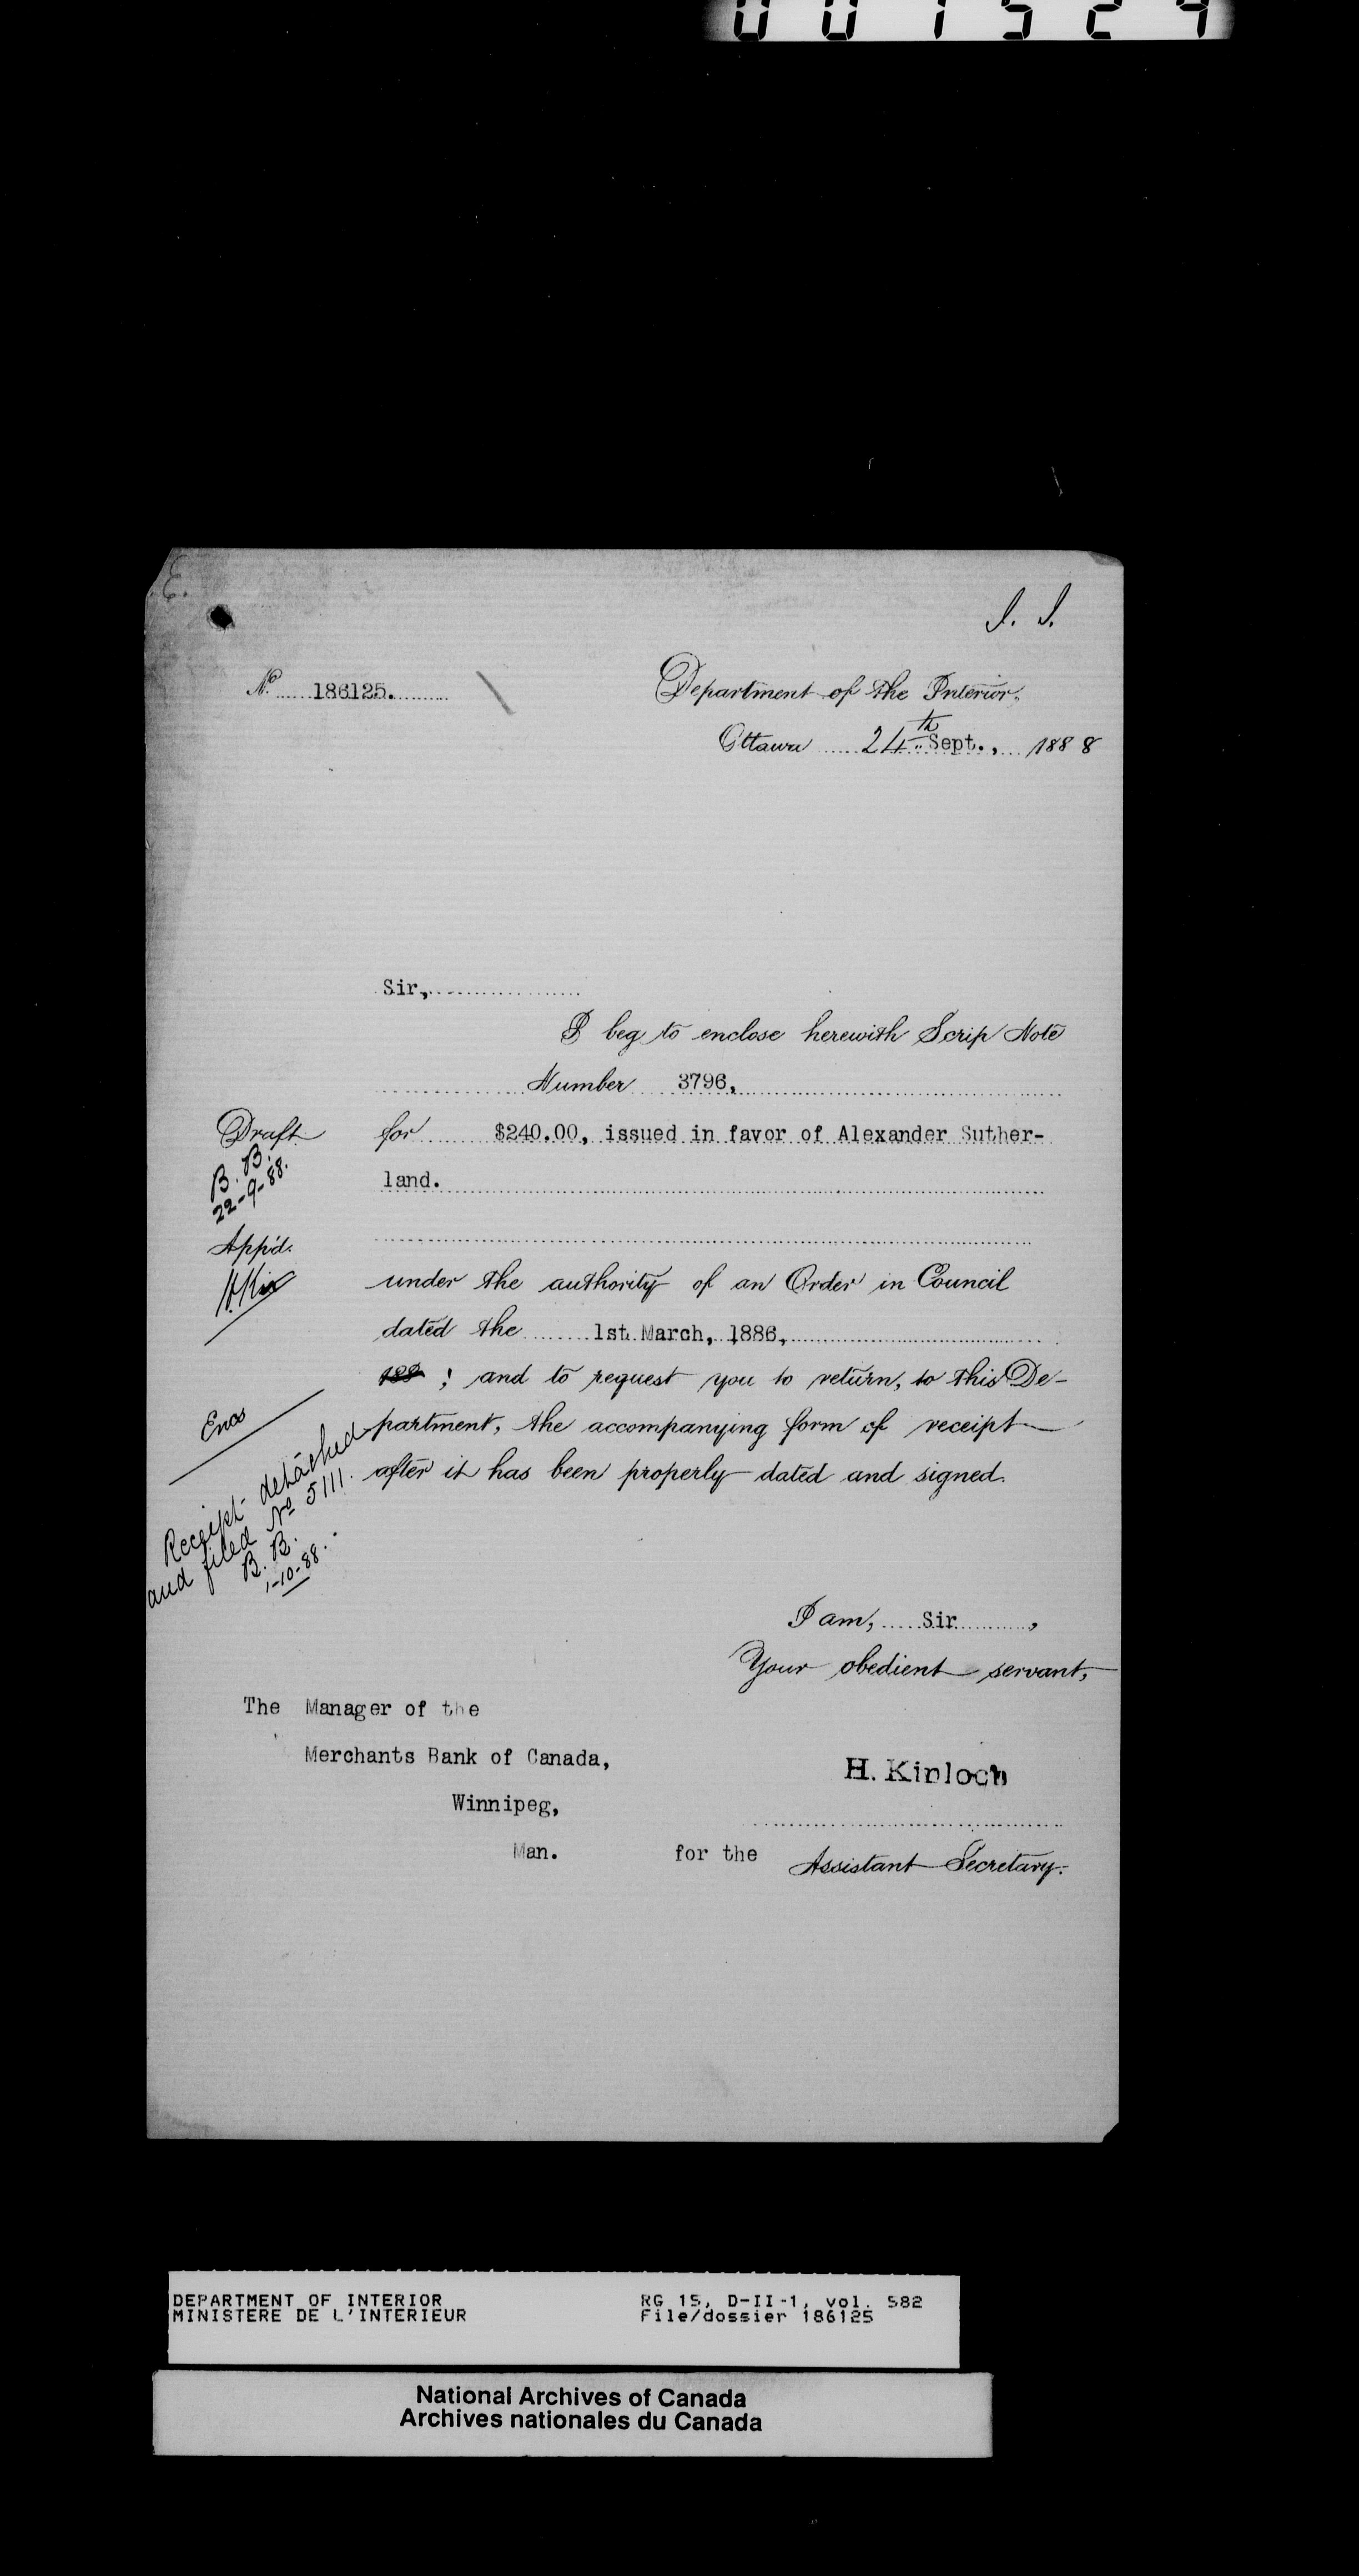 001524
E.
J. J.
No 186125.
Department of the Interior,
Ottawa 24th Sept., 1888
Sir,
I beg to enclose herewith Scrip Note
Number 3796,
for $240.00, issued in favor of Alexander Suther-
land.
under the authority of an Order in Council
dated the 1st March, 1886,
188 ; and to request you to return, to this De-
partment, the accompanying form of receipt
after it has been properly dated and signed.
Draft
B. B.
22-9-88.
App'd.
Encs
Receipt detached
and filed No 5111.
B. B.
1-10-88.
I am, Sir,
Your obedient servant,
The Manager of the
Merchants Bank of Canada,
Winnipeg,
Man.
H. Kinloch
for the Assistant Secretary.
DEPARTMENT OF INTERIOR
MINISTERE DE L'INTERIEUR
RG 15, D-II-1, vol. 582
File/dossier 186125
National Archives of Canada
Archives nationales du Canada